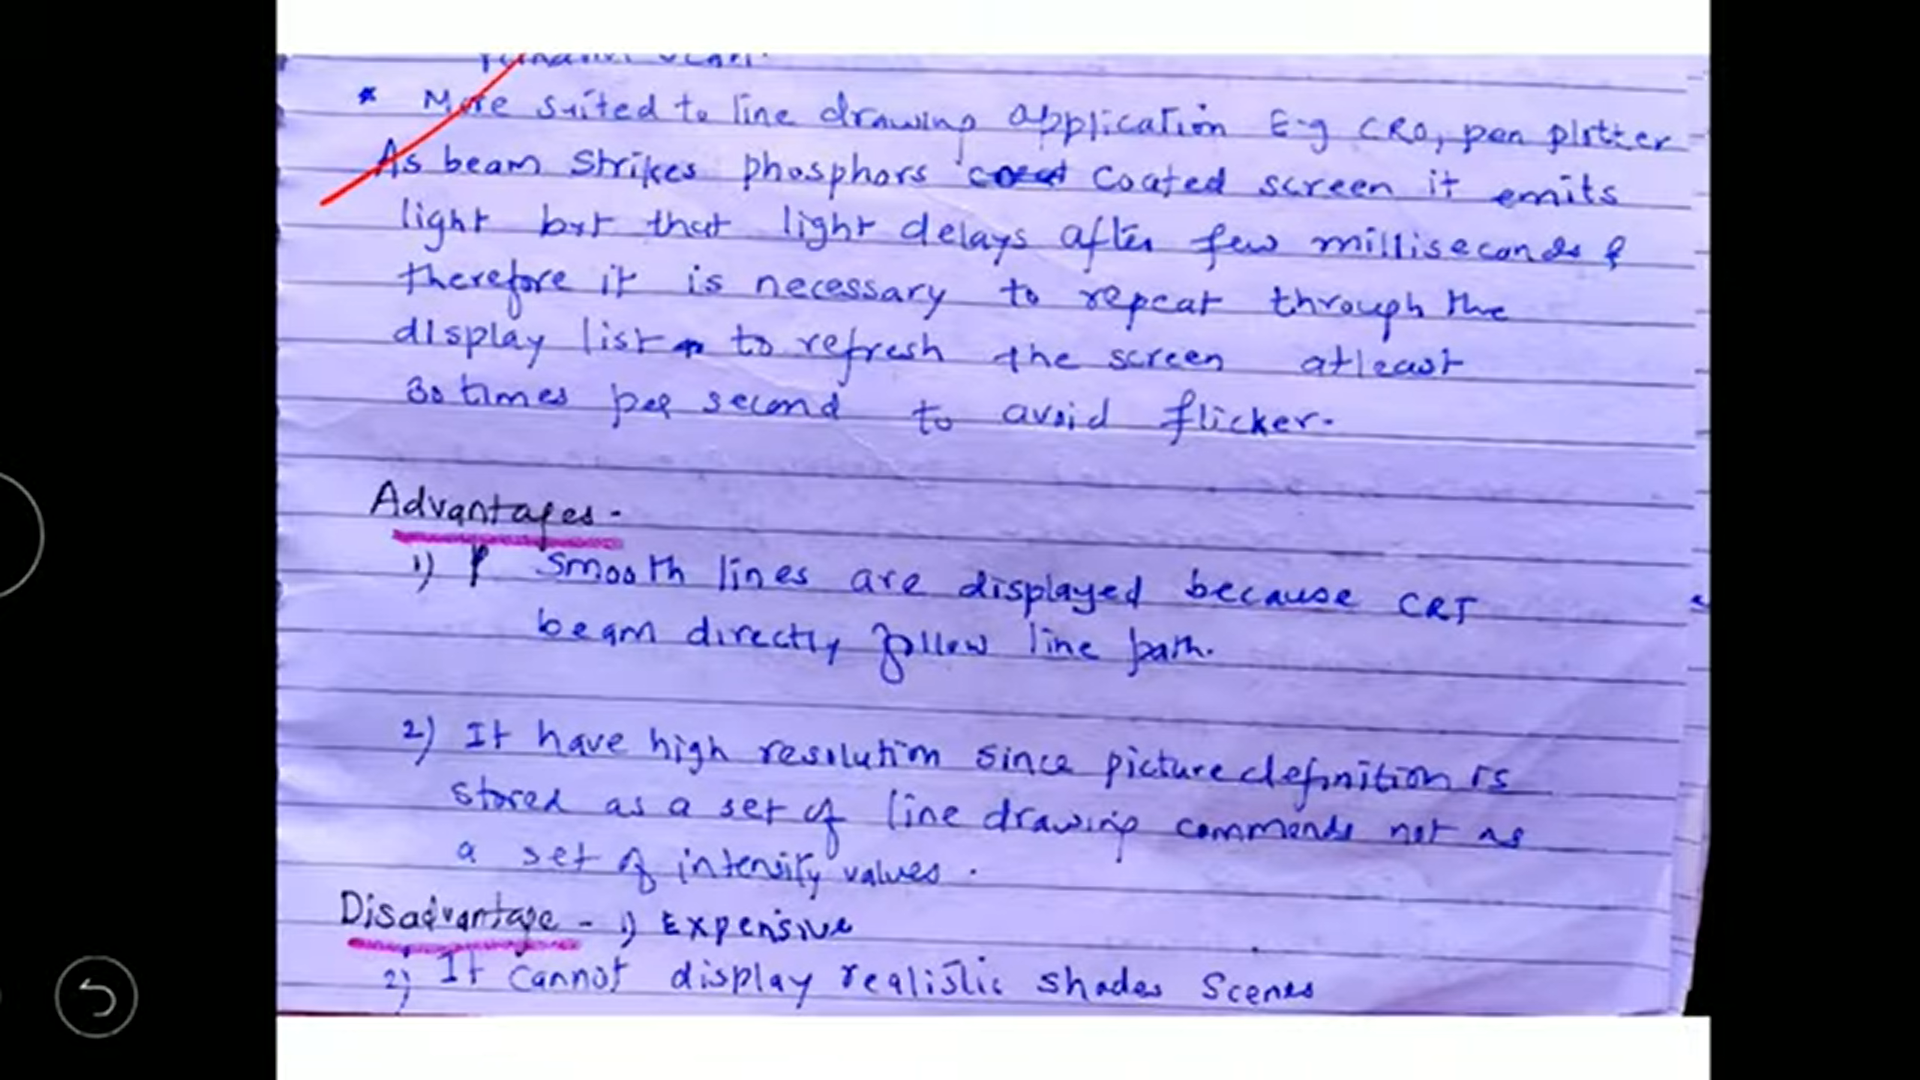 Random Scan.
* More suited to line drawing application E.g CRO, pen plotter
As beam strikes phosphors coated screen it emits
light but that light delays after few milliseconds &
therefore it is necessary to repeat through the
display list to refresh the screen atleast
30 times per second to avoid flicker.
Advantages -
1) Smooth lines are displayed because CRT
beam directly follow line path.
2) It have high resolution since picture definition is
stored as a set of line drawing commands not as
a set of intensity values.
Disadvantage - 1) Expensive
2) It cannot display realistic shades Scenes